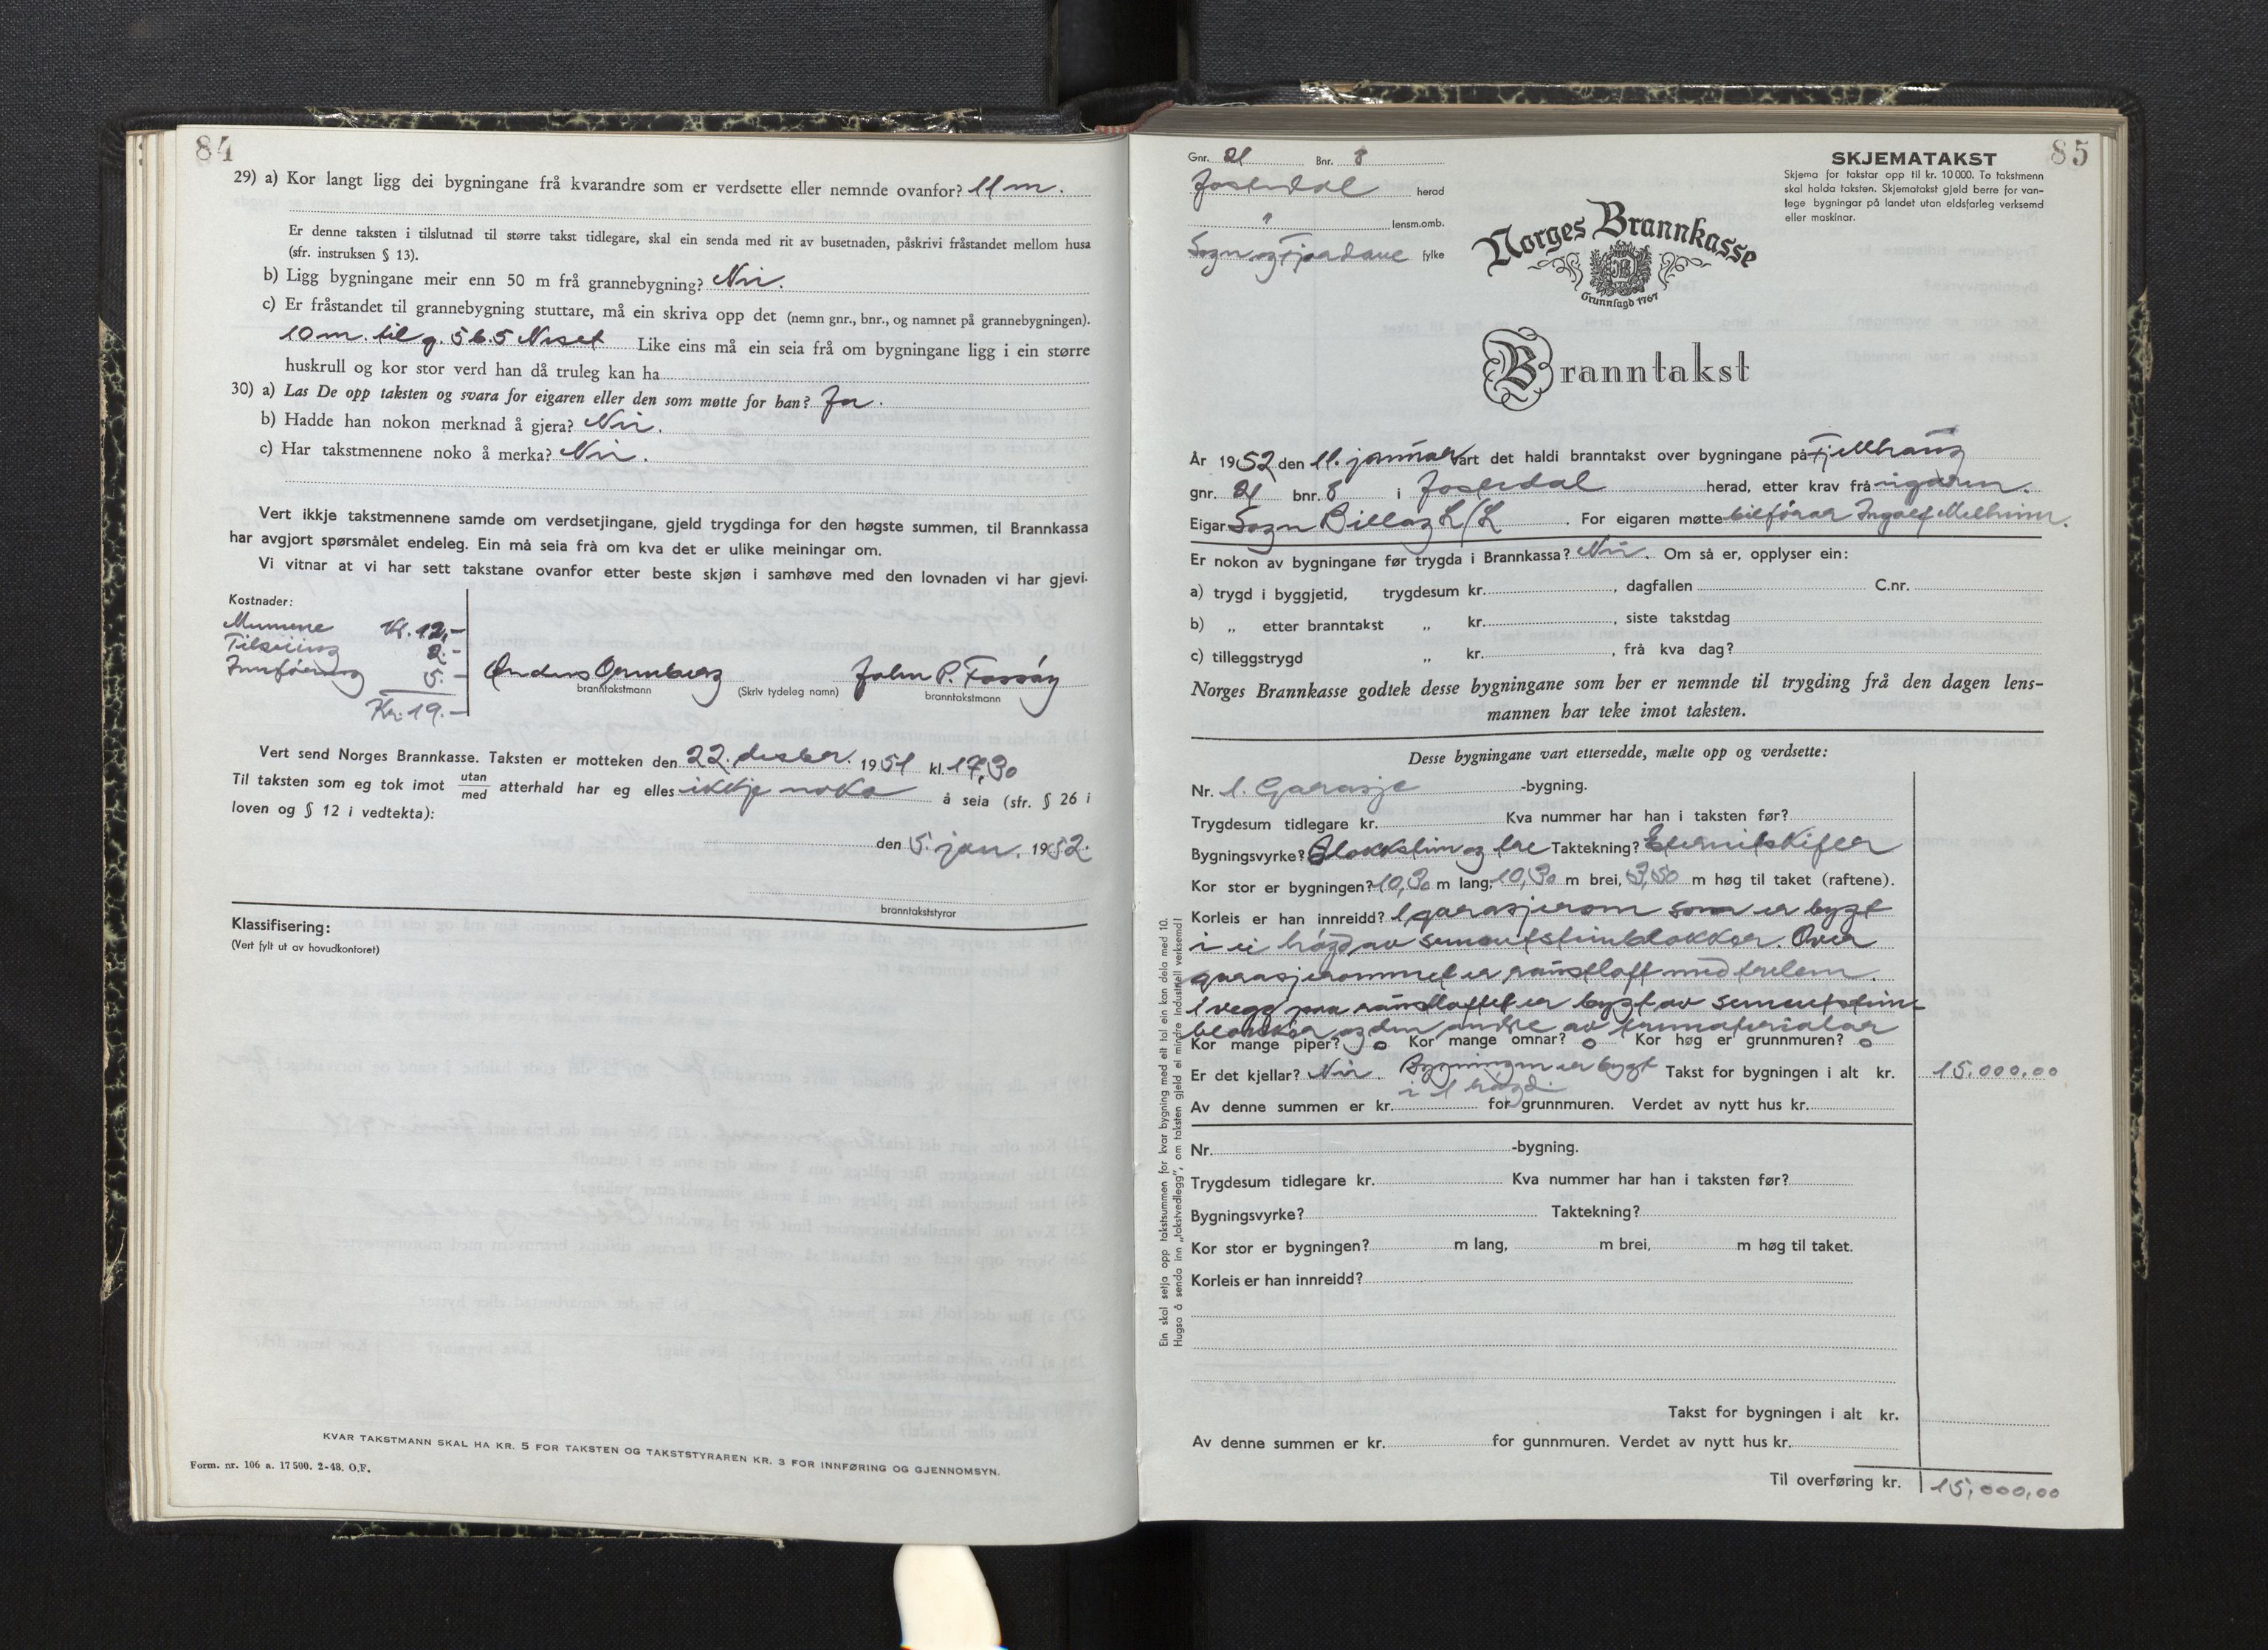 84
29) a) Kor langt ligg dei bygningane frå kvarandre som er verdsette eller nemnde ovanfor? 11 m.
Er denne taksten i tilslutnad til større takst tidlegare, skal ein senda med rit av busetnaden, påskrivi fråstandet mellom husa
(sfr. instruksen § 13).
b) Ligg bygningane meir enn 50 m frå grannebygning? Nei.
c) Er fråstandet til grannebygning stuttare, må ein skriva opp det (nemn gnr., bnr., og namnet på grannebygningen).
10 m. til g. 5 b. 5 Neset Like eins må ein seia frå om bygningane ligg i ein større
huskrull og kor stor verd han då truleg kan ha
30) a) Las De opp taksten og svara for eigaren eller den som møtte for han? Ja.
b) Hadde han nokon merknad å gjera? Nei.
c) Har takstmennene noko å merka? Nei.
Vert ikkje takstmennene samde om verdsetjingane, gjeld trygdinga for den høgste summen, til Brannkassa
har avgjort spørsmålet endeleg. Ein må seia frå om kva det er ulike meiningar om.
Vi vitnar at vi har sett takstane ovanfor etter beste skjøn i samhøve med den lovnaden vi har gjevi.
Kostnader:
Mennene Kr. 12,-
Tilseiing 2.-
Innføring 5.-
Kr. 19.-
Anders Ormberg John P. Fossøy
branntakstmann (Skriv tydeleg namn) branntakstmann
Vert send Norges Brannkasse. Taksten er motteken den 22. desbr. 1951 kl. 17,30
Til taksten som eg tok imot utan/med atterhald har eg elles ikkje noko å seia (sfr. § 26 i
loven og § 12 i vedtekta):
den 5. jan. 1952.
branntakststyrar
Klassifisering:
(Vert fylt ut av hovudkontoret)
KVAR TAKSTMANN SKAL HA KR. 5 FOR TAKSTEN OG TAKSTSTYRAREN KR. 3 FOR INNFØRING OG GJENNOMSYN.
Form. nr. 106 a. 17500. 2-48. O.F.
85
Gnr. 21 Bnr. 8
Jostedal herad
" lensm.omb.
Sogn og Fjordane fylke
SKJEMATAKST
Skjema for takstar opp til kr. 10 000. To takstmenn
skal halda taksten. Skjematakst gjeld berre for van-
lege bygningar på landet utan eldsfarleg verksemd
eller maskinar.
Norges Brannkasse
Grunnlagd 1767
Branntakst
År 1952 den 11. januar vart det haldi branntakst over bygningane på Fjellhaug
gnr. 21 bnr. 8 i Jostedal herad, etter krav frå eigaren.
Eigar Sogn Billag L/L. For eigaren møtte bilførar Ingolf Melheim.
Er nokon av bygningane før trygda i Brannkassa? Nei. Om så er, opplyser ein:
a) trygd i byggjetid, trygdesum kr. , dagfallen C.nr.
b) „ etter branntakst „ kr. , siste takstdag
c) tilleggstrygd „ kr. , frå kva dag?
Norges Brannkasse godtek desse bygningane som her er nemnde til trygding frå den dagen lens-
mannen har teke imot taksten.
Desse bygningane vart ettersedde, mælte opp og verdsette:
Nr. 1. Garasje -bygning.
Trygdesum tidlegare kr. Kva nummer har han i taksten før?
Bygningsvyrke? Blokkstein og tre Taktekning? Eternitskifer
Kor stor er bygningen? 10,30 m lang, 10,30 m brei, 3,50 m høg til taket (raftene).
Korleis er han innreidd? 1 garasjerom som er bygt
i ei høgd av sementsteinblokker. Over
garasjerommet er røustloft med trelem.
1 vegg paa røustloftet er bygt av sementstein-
blokker og den andre av trematerialar
Kor mange piper? 0 Kor mange omnar? 0 Kor høg er grunnmuren? 0
Er det kjellar? Nei. Bygningen er bygt Takst for bygningen i alt kr. 15.000,00
i 1 høgd.
Av denne summen er kr. for grunnmuren. Verdet av nytt hus kr.
Nr. -bygning.
Trygdesum tidlegare kr. Kva nummer har han i taksten før?
Bygningsvyrke? Taktekning?
Kor stor er bygningen? m lang, m brei, m høg til taket.
Korleis er han innreidd?
Takst for bygningen i alt kr.
Av denne summen er kr. for gunnmuren. Verdet av nytt hus kr.
Til overføring kr. 15,000,00
Ein skal setja opp takstsummen for kvar bygning med eit tal ein kan dela med 10.
Hugsa å senda inn „takstvedlegg", om taksten gjeld ei mindre industriell verksemd!